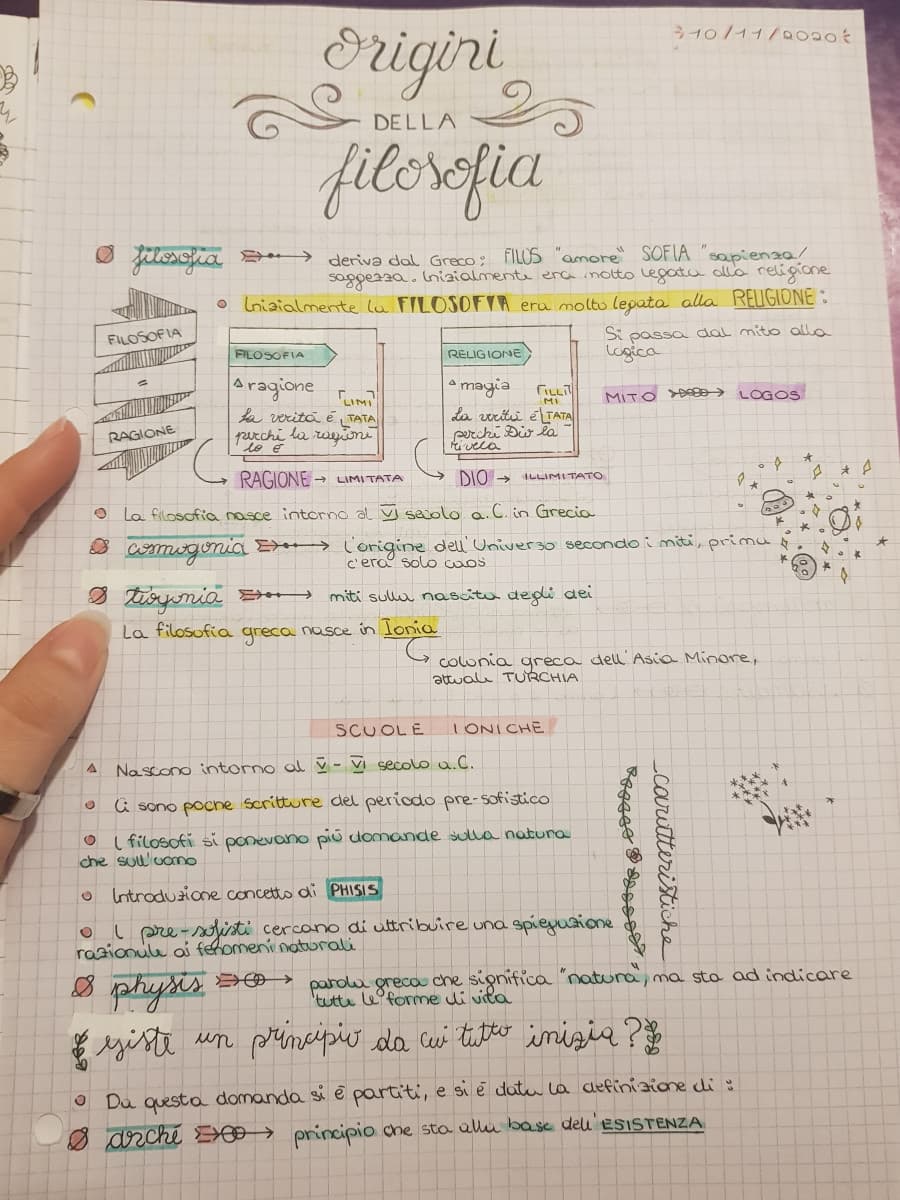 10/11/2020
Origini
DELLA
filosofia
filosofia deriva dal Greco: FILOS "amore" SOFIA "sapienza/
saggezza. Inizialmente era molto legata alla religione
Inizialmente la FILOSOFIA era molto legata alla RELIGIONE:
FILOSOFIA
=
RAGIONE
FILOSOFIA
ragione
La verità è LIMI
TATA
perché la ragione
lo è
RAGIONE → LIMITATA
RELIGIONE
magia
La verità è ILLI
MI
TATA
perché Dio la
rivela
DIO → ILLIMITATO
Si passa dal mito alla
logica
MITO → LOGOS
La filosofia nasce intorno al VI secolo a.C. in Grecia
cosmogonia → l'origine dell'Universo secondo i miti, prima
c'era solo caos
teogonia → miti sulla nascita degli dei
La filosofia greca nasce in Ionia
colonia greca dell'Asia Minore,
attuale TURCHIA
SCUOLE IONICHE
Nascono intorno al V - VI secolo a.C.
Ci sono poche scritture del periodo pre-sofistico
I filosofi si ponevano più domande sulla natura
che sull'uomo
Introduzione concetto di PHISIS
I pre-sofisti cercano di attribuire una spiegazione
razionale ai fenomeni naturali
caratteristiche
physis → parola greca che significa "natura", ma sta ad indicare
tutte le forme di vita
esiste un principio da cui tutto inizia?
Da questa domanda si è partiti, e si è data la definizione di:
arché → principio che sta alla base dell'ESISTENZA